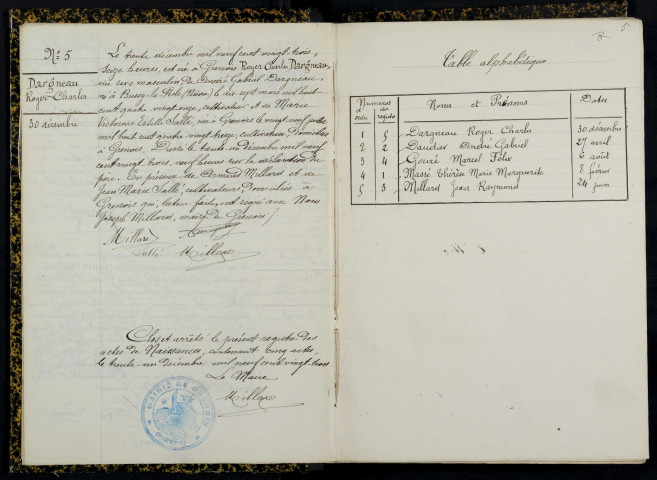 N° 5
Dargneau
Roger-Charles
30 décembre
Le trente décembre mil neuf cent vingt trois,
seize heures, est né à Grenois Roger Charles Dargneau,
du sexe masculin de Gabriel Dargneau
né à Bussy la Pesle (Nièvre) le dix sept mars mil huit
cent quatre vingt onze, cultivateur et de Marie
Victorine Estelle Sallé, née à Grenois le vingt neuf
mil huit cent quatre vingt treize, cultivatrice, domiciliés
à Grenois. Dressé le trente un décembre mil neuf
cent vingt trois, neuf heures sur la déclaration du
père. En présence de Armand Millard et de
Jean Marie Sallé, cultivateurs, domiciliés à
Grenois qui, lecture faite, ont signé avec Nous
Joseph Millard, maire de Grenois./.
Millard
Sallé Millard
Clos et arrêté le présent registre des
actes de Naissance, contenant cinq actes,
le trente un décembre mil neuf cent vingt trois
Le Maire
Millard
MAIRIE DE GRENOIS
(NIÈVRE)
5
Table alphabétique
Numéros
d'ordre du registre Noms et Prénoms Dates
1 5 Dargneau Roger Charles 30 décembre
2 2 Daudier André Gabriel 27 avril
3 4 Gouré Marcel Félix 6 août
4 1 Massé Thérèse Marie Marguerite 8 février
5 3 Millard Jean Raymond 24 juin